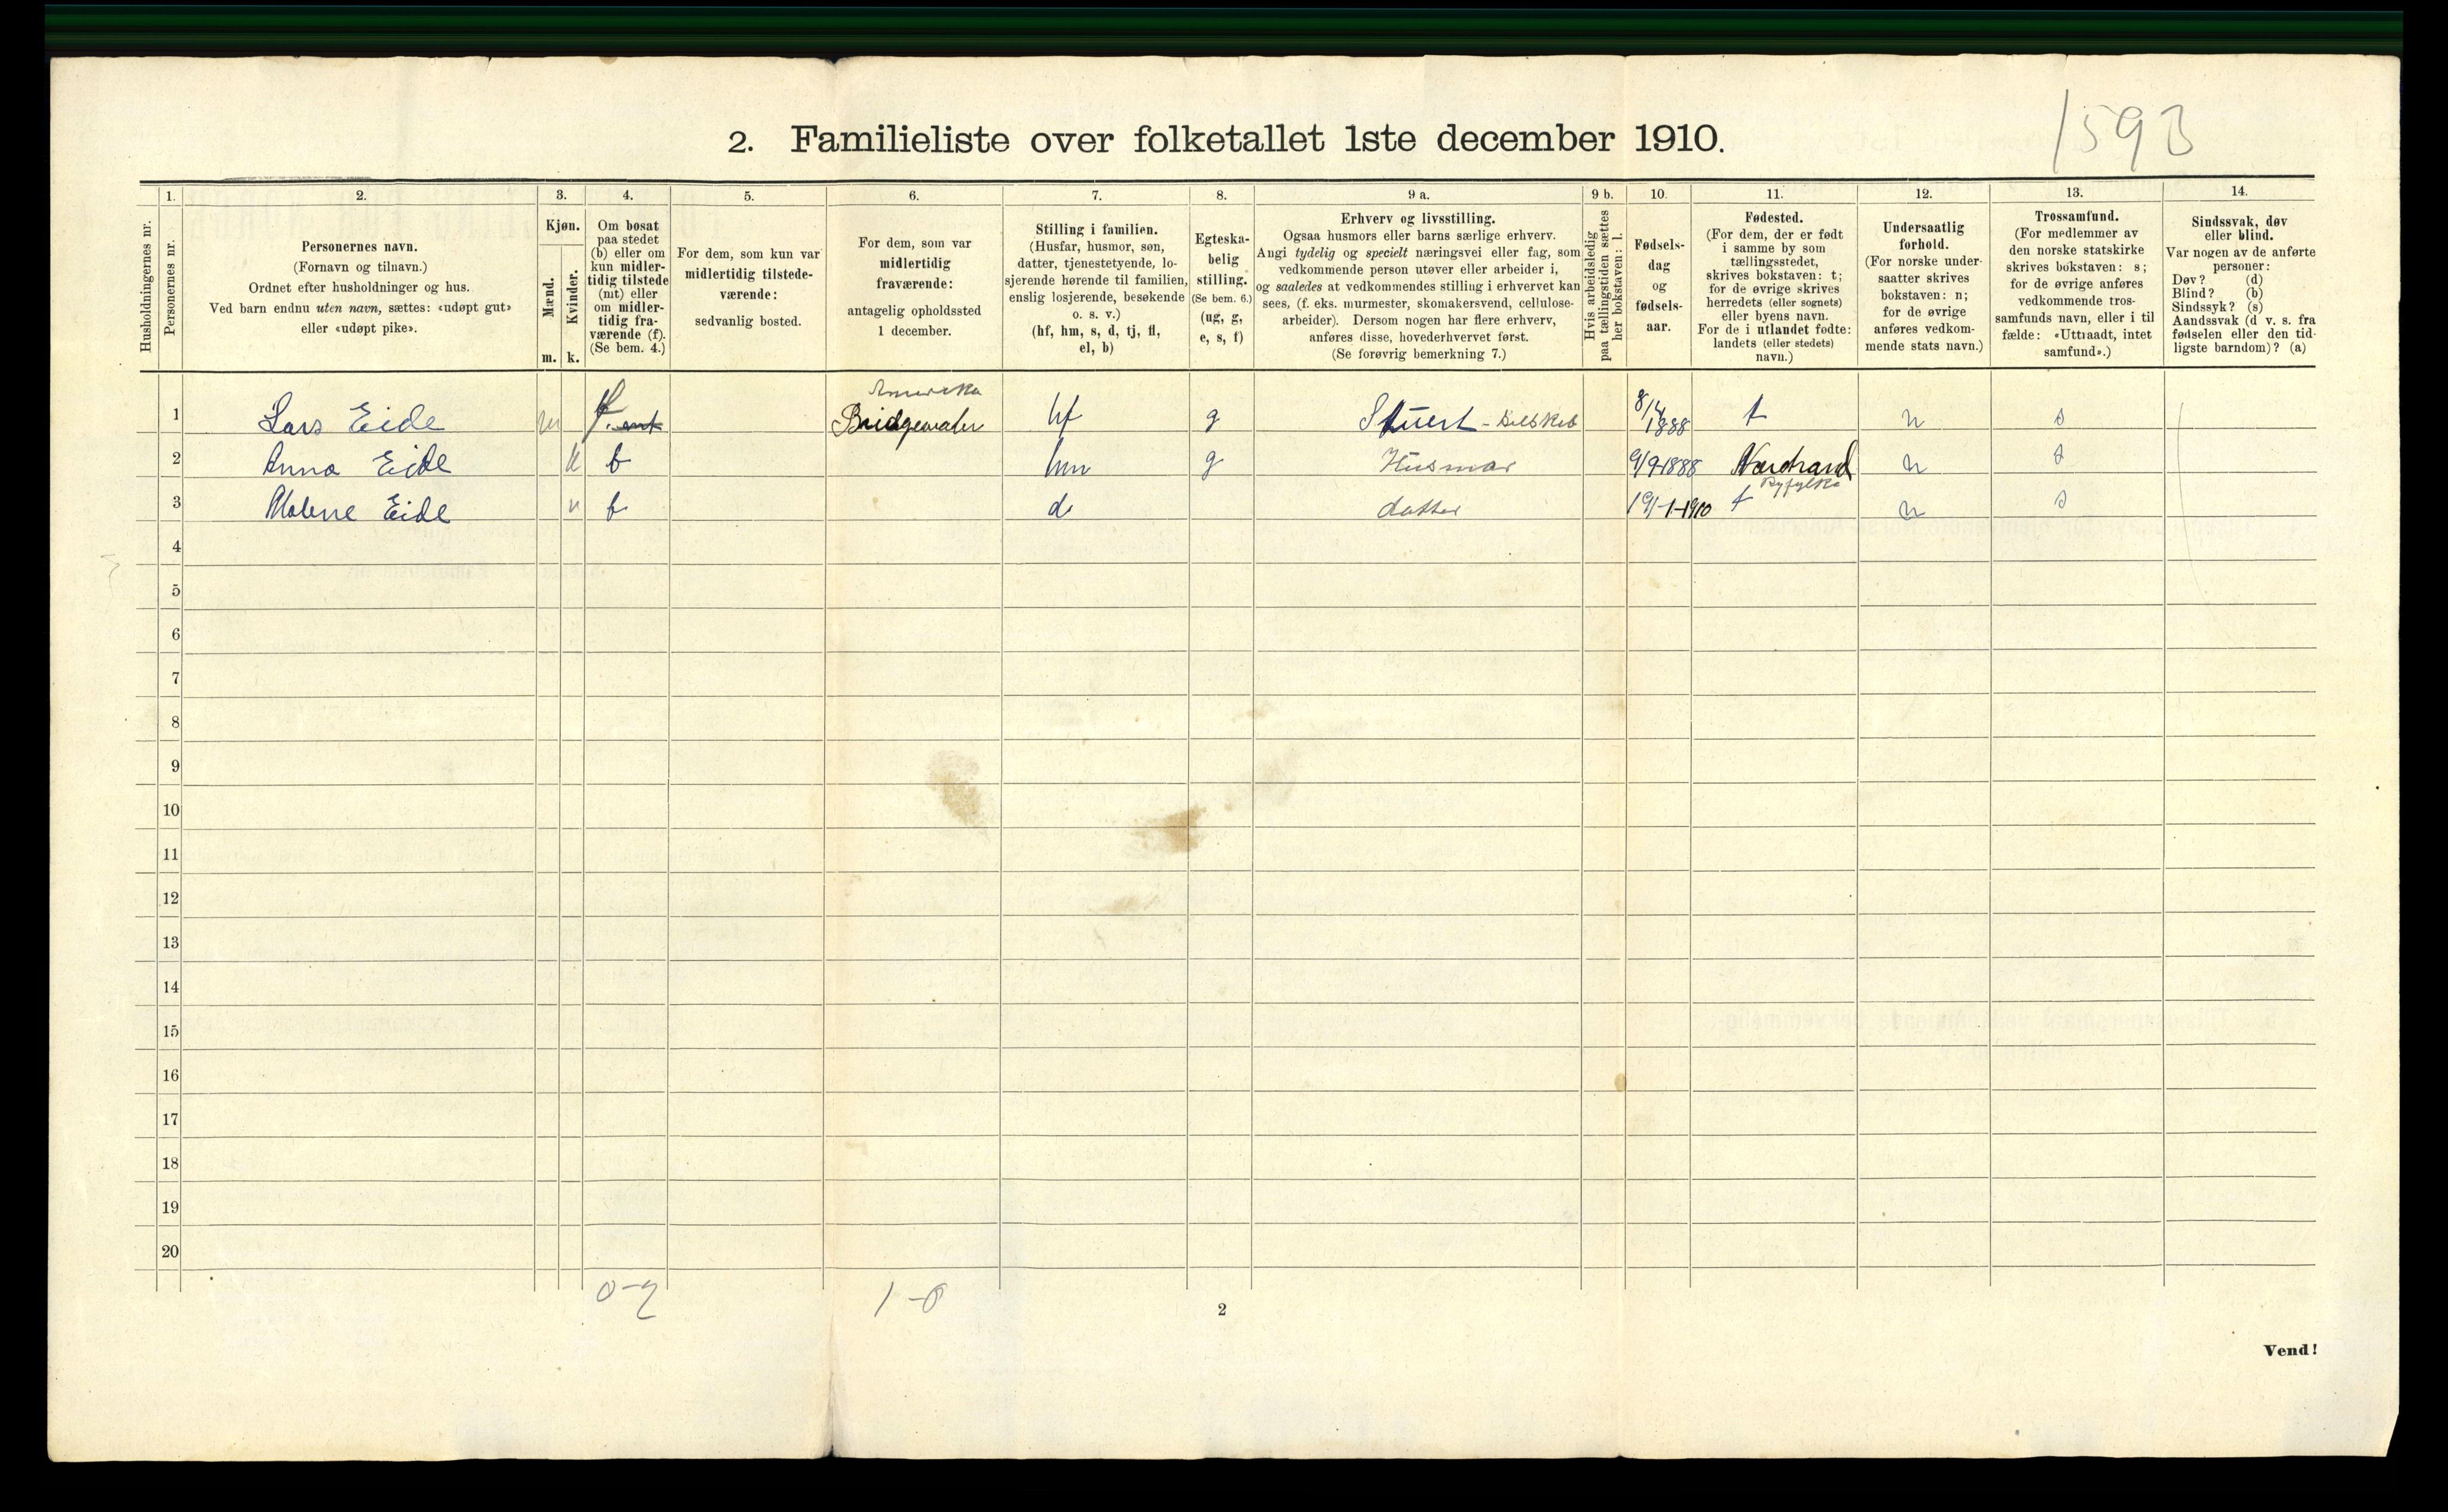 1593
2. Familieliste over folketallet 1ste december 1910.
Husholdningernes nr.
1. Personernes nr.
2. Personernes navn.
(Fornavn og tilnavn.)
Ordnet efter husholdninger og hus.
Ved barn endnu uten navn, sættes: «udøpt gut»
eller «udøpt pike».
3. Kjøn.
Mænd. m.
Kvinder. k.
4. Om bosat
paa stedet
(b) eller om
kun midler-
tidig tilstede
(mt) eller
om midler-
tidig fra-
værende (f).
(Se bem. 4.)
5. For dem, som kun var
midlertidig tilstede-
værende:
sedvanlig bosted.
6. For dem, som var
midlertidig
fraværende:
antagelig opholdssted
1 december.
7. Stilling i familien.
(Husfar, husmor, søn,
datter, tjenestetyende, lo-
sjerende hørende til familien,
enslig losjerende, besøkende
o. s. v.)
(hf, hm, s, d, tj, fl,
el, b)
8. Egteska-
belig
stilling.
(Se bem. 6.)
(ug, g,
e, s, f)
9 a. Erhverv og livsstilling.
Ogsaa husmors eller barns særlige erhverv.
Angi tydelig og specielt næringsvei eller fag, som
vedkommende person utøver eller arbeider i,
og saaledes at vedkommendes stilling i erhvervet kan
sees, (f. eks. murmester, skomakersvend, cellulose-
arbeider). Dersom nogen har flere erhverv,
anføres disse, hovederhvervet først.
(Se forøvrig bemerkning 7.)
9 b. Hvis arbeidsledig
paa tællingstiden sættes
her bokstaven: l.
10. Fødsels-
dag
og
fødsels-
aar.
11. Fødested.
(For dem, der er født
i samme by som
tællingsstedet,
skrives bokstaven: t;
for de øvrige skrives
herredets (eller sognets)
eller byens navn.
For de i utlandet fødte:
landets (eller stedets)
navn.)
12. Undersaatlig
forhold.
(For norske under-
saatter skrives
bokstaven: n;
for de øvrige
anføres vedkom-
mende stats navn.)
13. Trossamfund.
(For medlemmer av
den norske statskirke
skrives bokstaven: s;
for de øvrige anføres
vedkommende tros-
samfunds navn, eller i til
fælde: «Uttraadt, intet
samfund».)
14. Sindssvak, døv
eller blind.
Var nogen av de anførte
personer:
Døv? (d)
Blind? (b)
Sindssyk? (s)
Aandssvak (d v. s. fra
fødselen eller den tid-
ligste barndom)? (a)
Amerika
1 Lars Eide m f. mt Bridgewater hf g Stuert - 8/4 1888 t n s
2 Anna Eide k b hm g Husmor 9/9 1888 Nærstrand n s
Ryfylke
3 Malene Eide k b d datter 19/-1-1910 t n s
4
5
6
7
8
9
10
11
12
13
14
15
16
17
18
19
20
0-2 1-0
2
Vend!